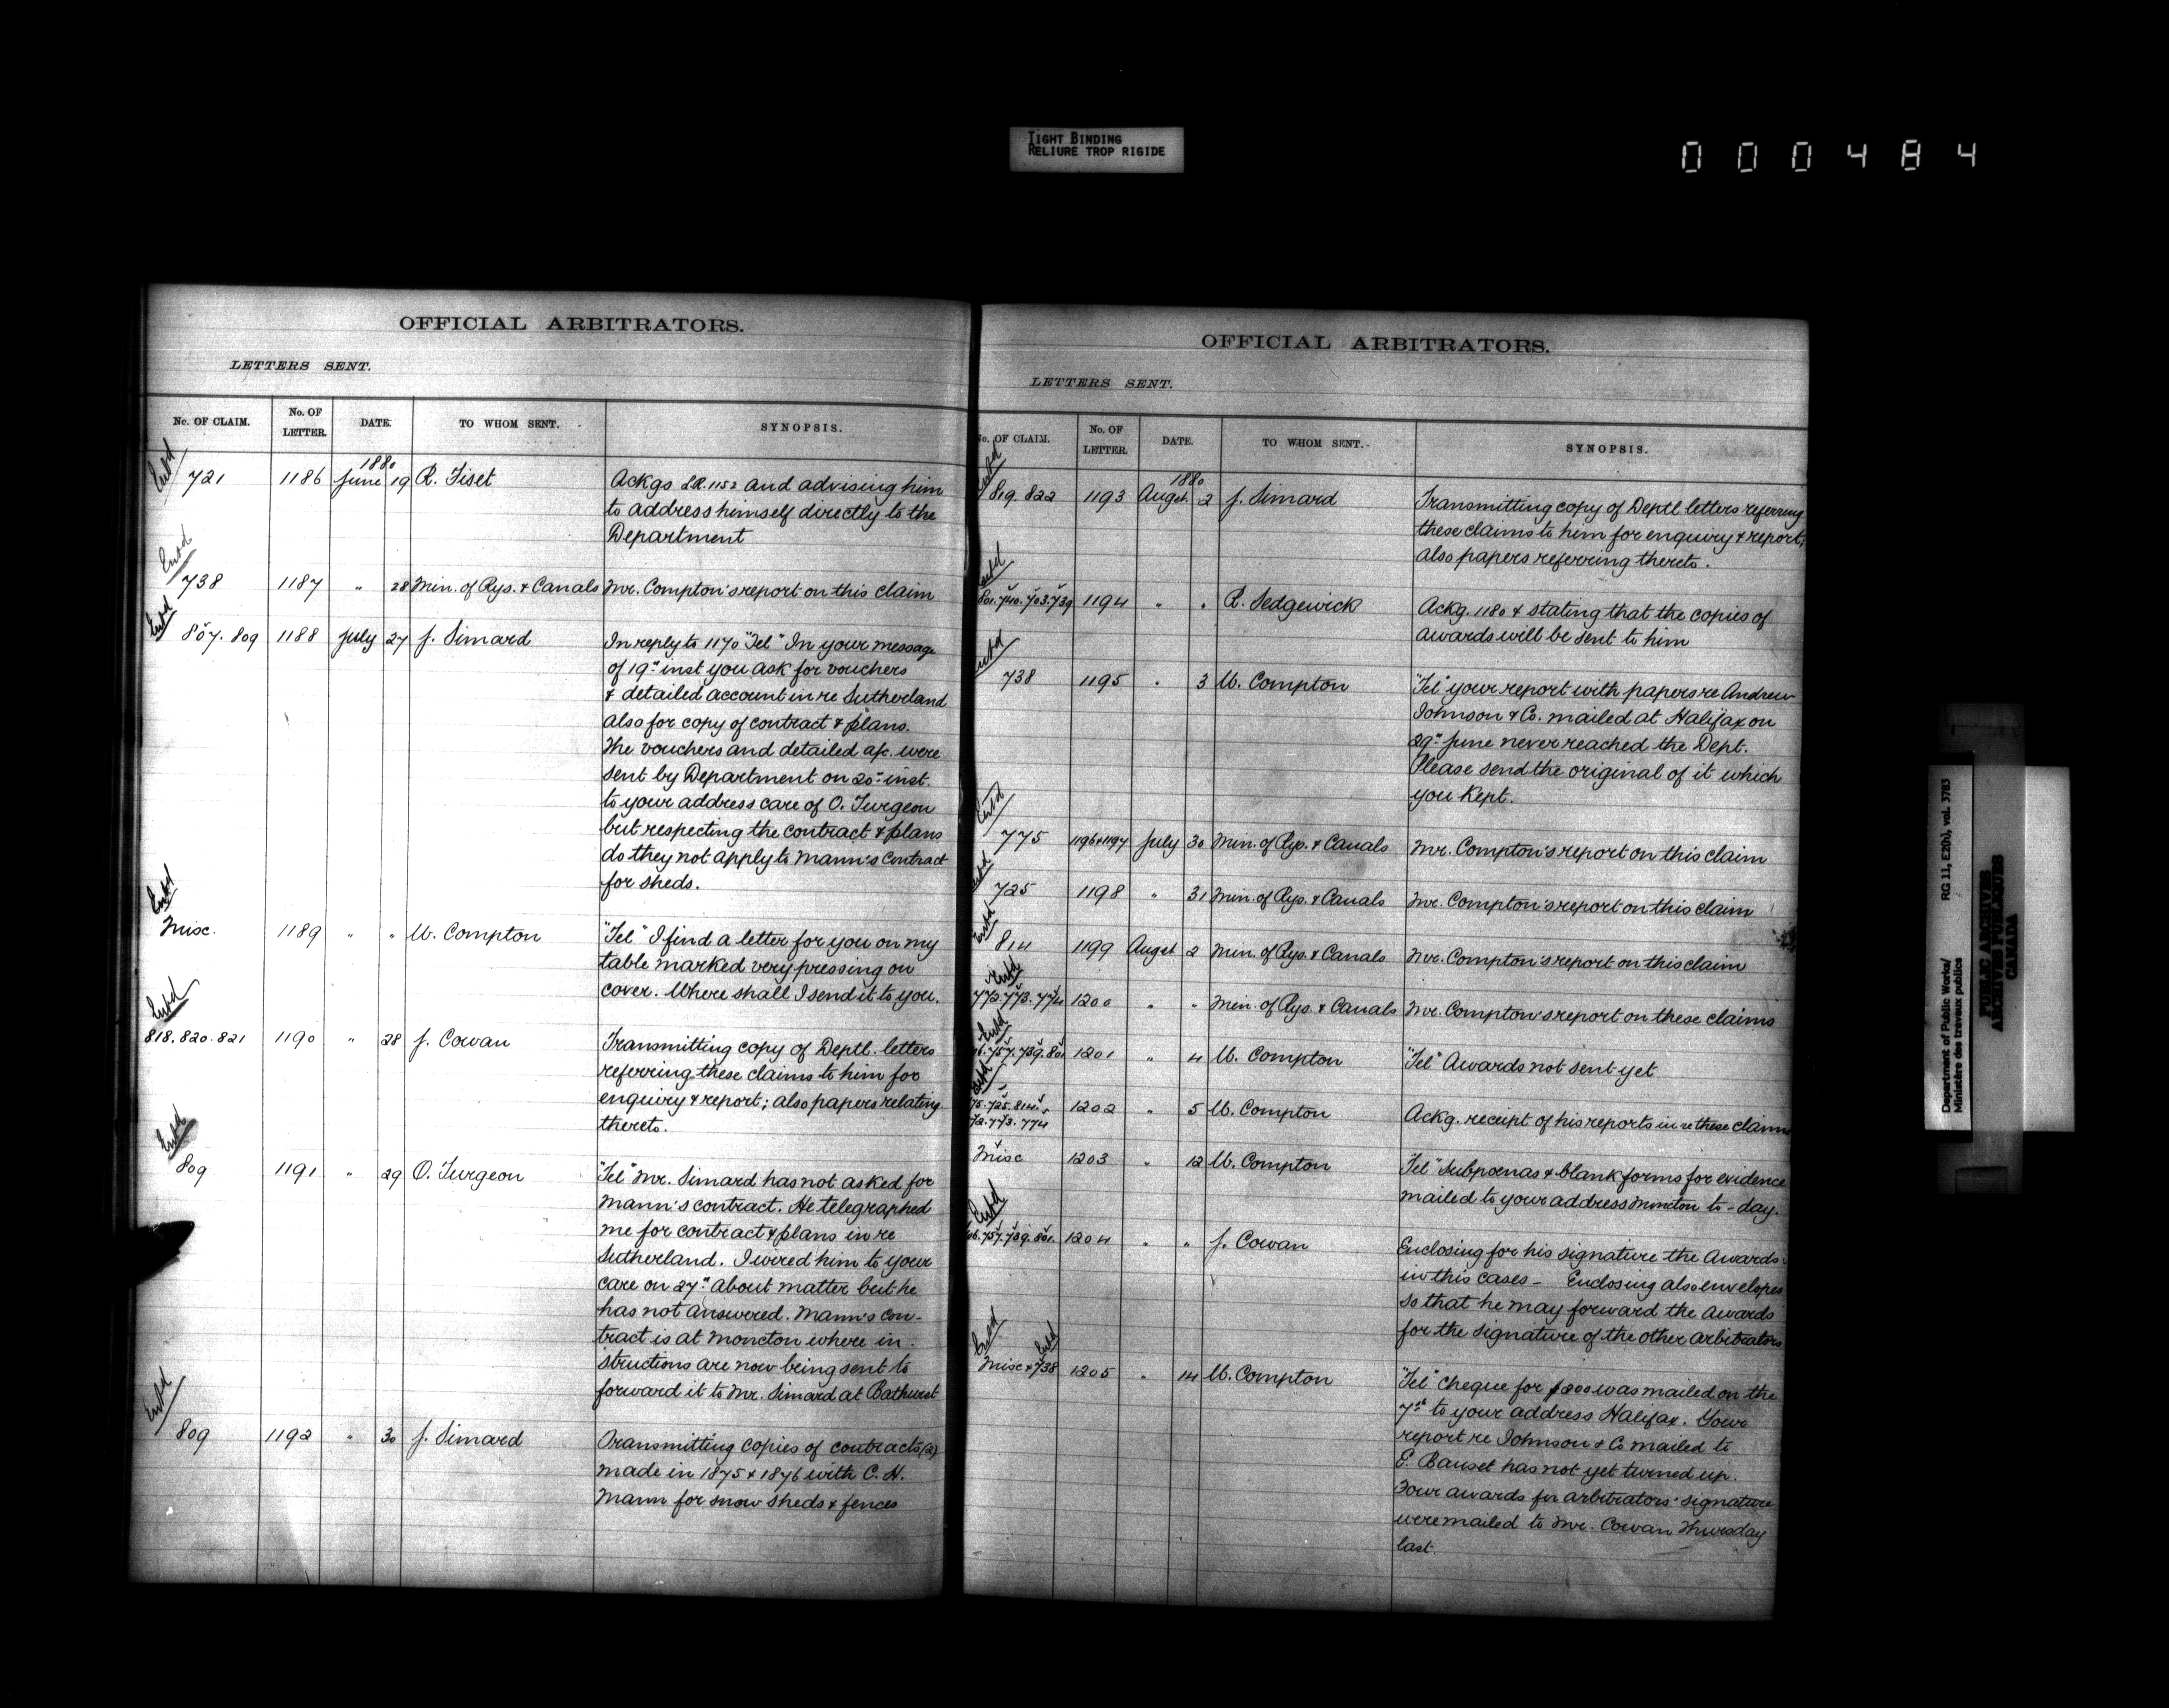 TIGHT BINDING
RELIURE TROP RIGIDE
000484
OFFICIAL ARBITRATORS.
LETTERS SENT.
No. OF CLAIM. No. OF LETTER. DATE. TO WHOM SENT. SYNOPSIS.
1880
Entd
721 1186 June 19 R. Fiset Ackgs L.R. 1152 and advising him
to address himself directly to the
Department
Entd
738 1187 " 28 Min. of Rys. & Canals Mr. Compton's report on this claim
Entd
807. 809 1188 July 27 J. Simard In reply to 1170 "Tel" In your message
of 19th inst you ask for vouchers
& detailed account in re Sutherland
also for copy of contract & plans.
The vouchers and detailed a/c. were
sent by Department on 20th inst.
to your address care of O. Turgeon
but respecting the contract & plans
do they not apply to Mann's contract
for sheds.
Entd
Misc. 1189 " " W. Compton "Tel" I find a letter for you on my
table marked very pressing on
cover. Where shall I send it to you.
Entd
818. 820. 821 1190 " 28 J. Cowan Transmitting copy of Deptl. letters
referring these claims to him for
enquiry & report; also papers relating
thereto.
Entd
809 1191 " 29 O. Turgeon "Tel" Mr. Simard has not asked for
Mann's contract. He telegraphed
me for contract & plans in re
Sutherland. I wired him to your
care on 27th about matter but he
has not answered. Mann's con-
tract is at Moncton where in-
structions are now being sent to
forward it to Mr. Simard at Bathurst
Entd
809 1192 " 30 J. Simard Transmitting copies of contracts (2)
made in 1875 & 1876 with C. H.
Mann for snow sheds & fences
OFFICIAL ARBITRATORS.
LETTERS SENT.
No. OF CLAIM. No. OF LETTER. DATE. TO WHOM SENT. SYNOPSIS.
1880
Entd
819. 822 1193 Augst. 2 J. Simard Transmitting copy of Deptl letters referring
these claims to him for enquiry & report;
also papers referring thereto.
Entd
801. 740. 703. 739 1194 " " R. Sedgewick Ackg. 1180 & stating that the copies of
awards will be sent to him
Entd
738 1195 " 3 W. Compton "Tel" your report with papers re Andrew
Johnson & Co. mailed at Halifax on
29th June never reached the Dept.
Please send the original of it which
you kept.
Entd
775 1196 & 1197 July 30 Min. of Rys. & Canals Mr. Compton's report on this claim
Entd
725 1198 " 31 Min. of Rys. & Canals Mr. Compton's report on this claim
Entd
814 1199 Augst 2 Min. of Rys. & Canals Mr. Compton's report on this claim
Entd
772. 773. 774 1200 " " Min. of Rys. & Canals Mr. Compton's report on these claims
Entd
757. 739. 801 1201 " 4 W. Compton "Tel" Awards not sent yet
Entd
725. 814. 1202 " 5 W. Compton Ackg. receipt of his reports in re these claims
773. 774
Misc 1203 " 12 W. Compton "Tel" Subpoenas & blank forms for evidence
mailed to your address Moncton to-day.
Entd
757. 739. 801. 1204 " " J. Cowan Enclosing for his signature the Awards
in this cases - Enclosing also envelopes
so that he may forward the Awards
for the signature of the other arbitrators
Entd Entd
Misc & 738 1205 " 14 W. Compton "Tel" Cheque for $800 was mailed on the
7th to your address Halifax. Your
report re Johnson & Co mailed to
E. Bauset has not yet turned up.
Four awards for arbitrators' signature
were mailed to Mr. Cowan Thursday
last.
Department of Public Works/ RG 11, E20), vol. 3783
Ministère des travaux publics
PUBLIC ARCHIVES
ARCHIVES PUBLIQUES
CANADA